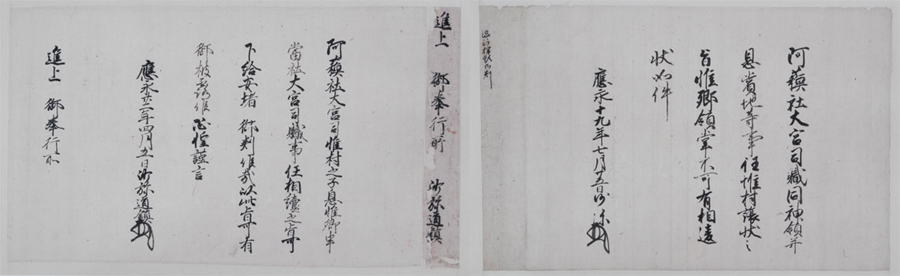 阿蘇社大宮司職同神領并
恩賞地等事任惟村譲状之
旨惟郷領掌不可有相違
状如件
應永十九年七月五日沙弥
進上 御奉行所 沙弥道鎮
阿蘇社大宮司惟村之子息惟郷申
當社大宮司職事任相續之旨可
下給安堵御判候哉以此旨可有
御披露候恐惶謹言
應永廿二年四月五日沙弥道鎮
進上 御奉行所